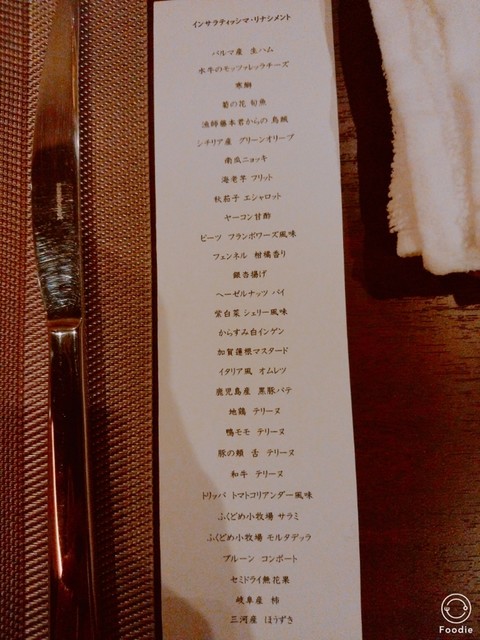 インサラティッシマ・リナシメント
パルマ産 生ハム
水牛のモッツァレッラチーズ
寒鰤
菊の花 旬魚
漁師藤本君からの 烏賊
シチリア産 グリーンオリーブ
南瓜ニョッキ
海老芋 フリット
秋茄子 エシャロット
ヤーコン甘酢
ビーツ フランボワーズ風味
フェンネル 柑橘香り
銀杏揚げ
ヘーゼルナッツ パイ
紫白菜 シェリー風味
からすみ白インゲン
加賀蓮根マスタード
イタリア風 オムレツ
鹿児島産 黒豚パテ
地鶏 テリーヌ
鴨モモ テリーヌ
豚の頬 舌 テリーヌ
和牛 テリーヌ
トリッパ トマトコリアンダー風味
ふくどめ小牧場 サラミ
ふくどめ小牧場 モルタデッラ
プルーン コンポート
セミドライ無花果
岐阜産 柿
三河産 ほうずき
Foodie